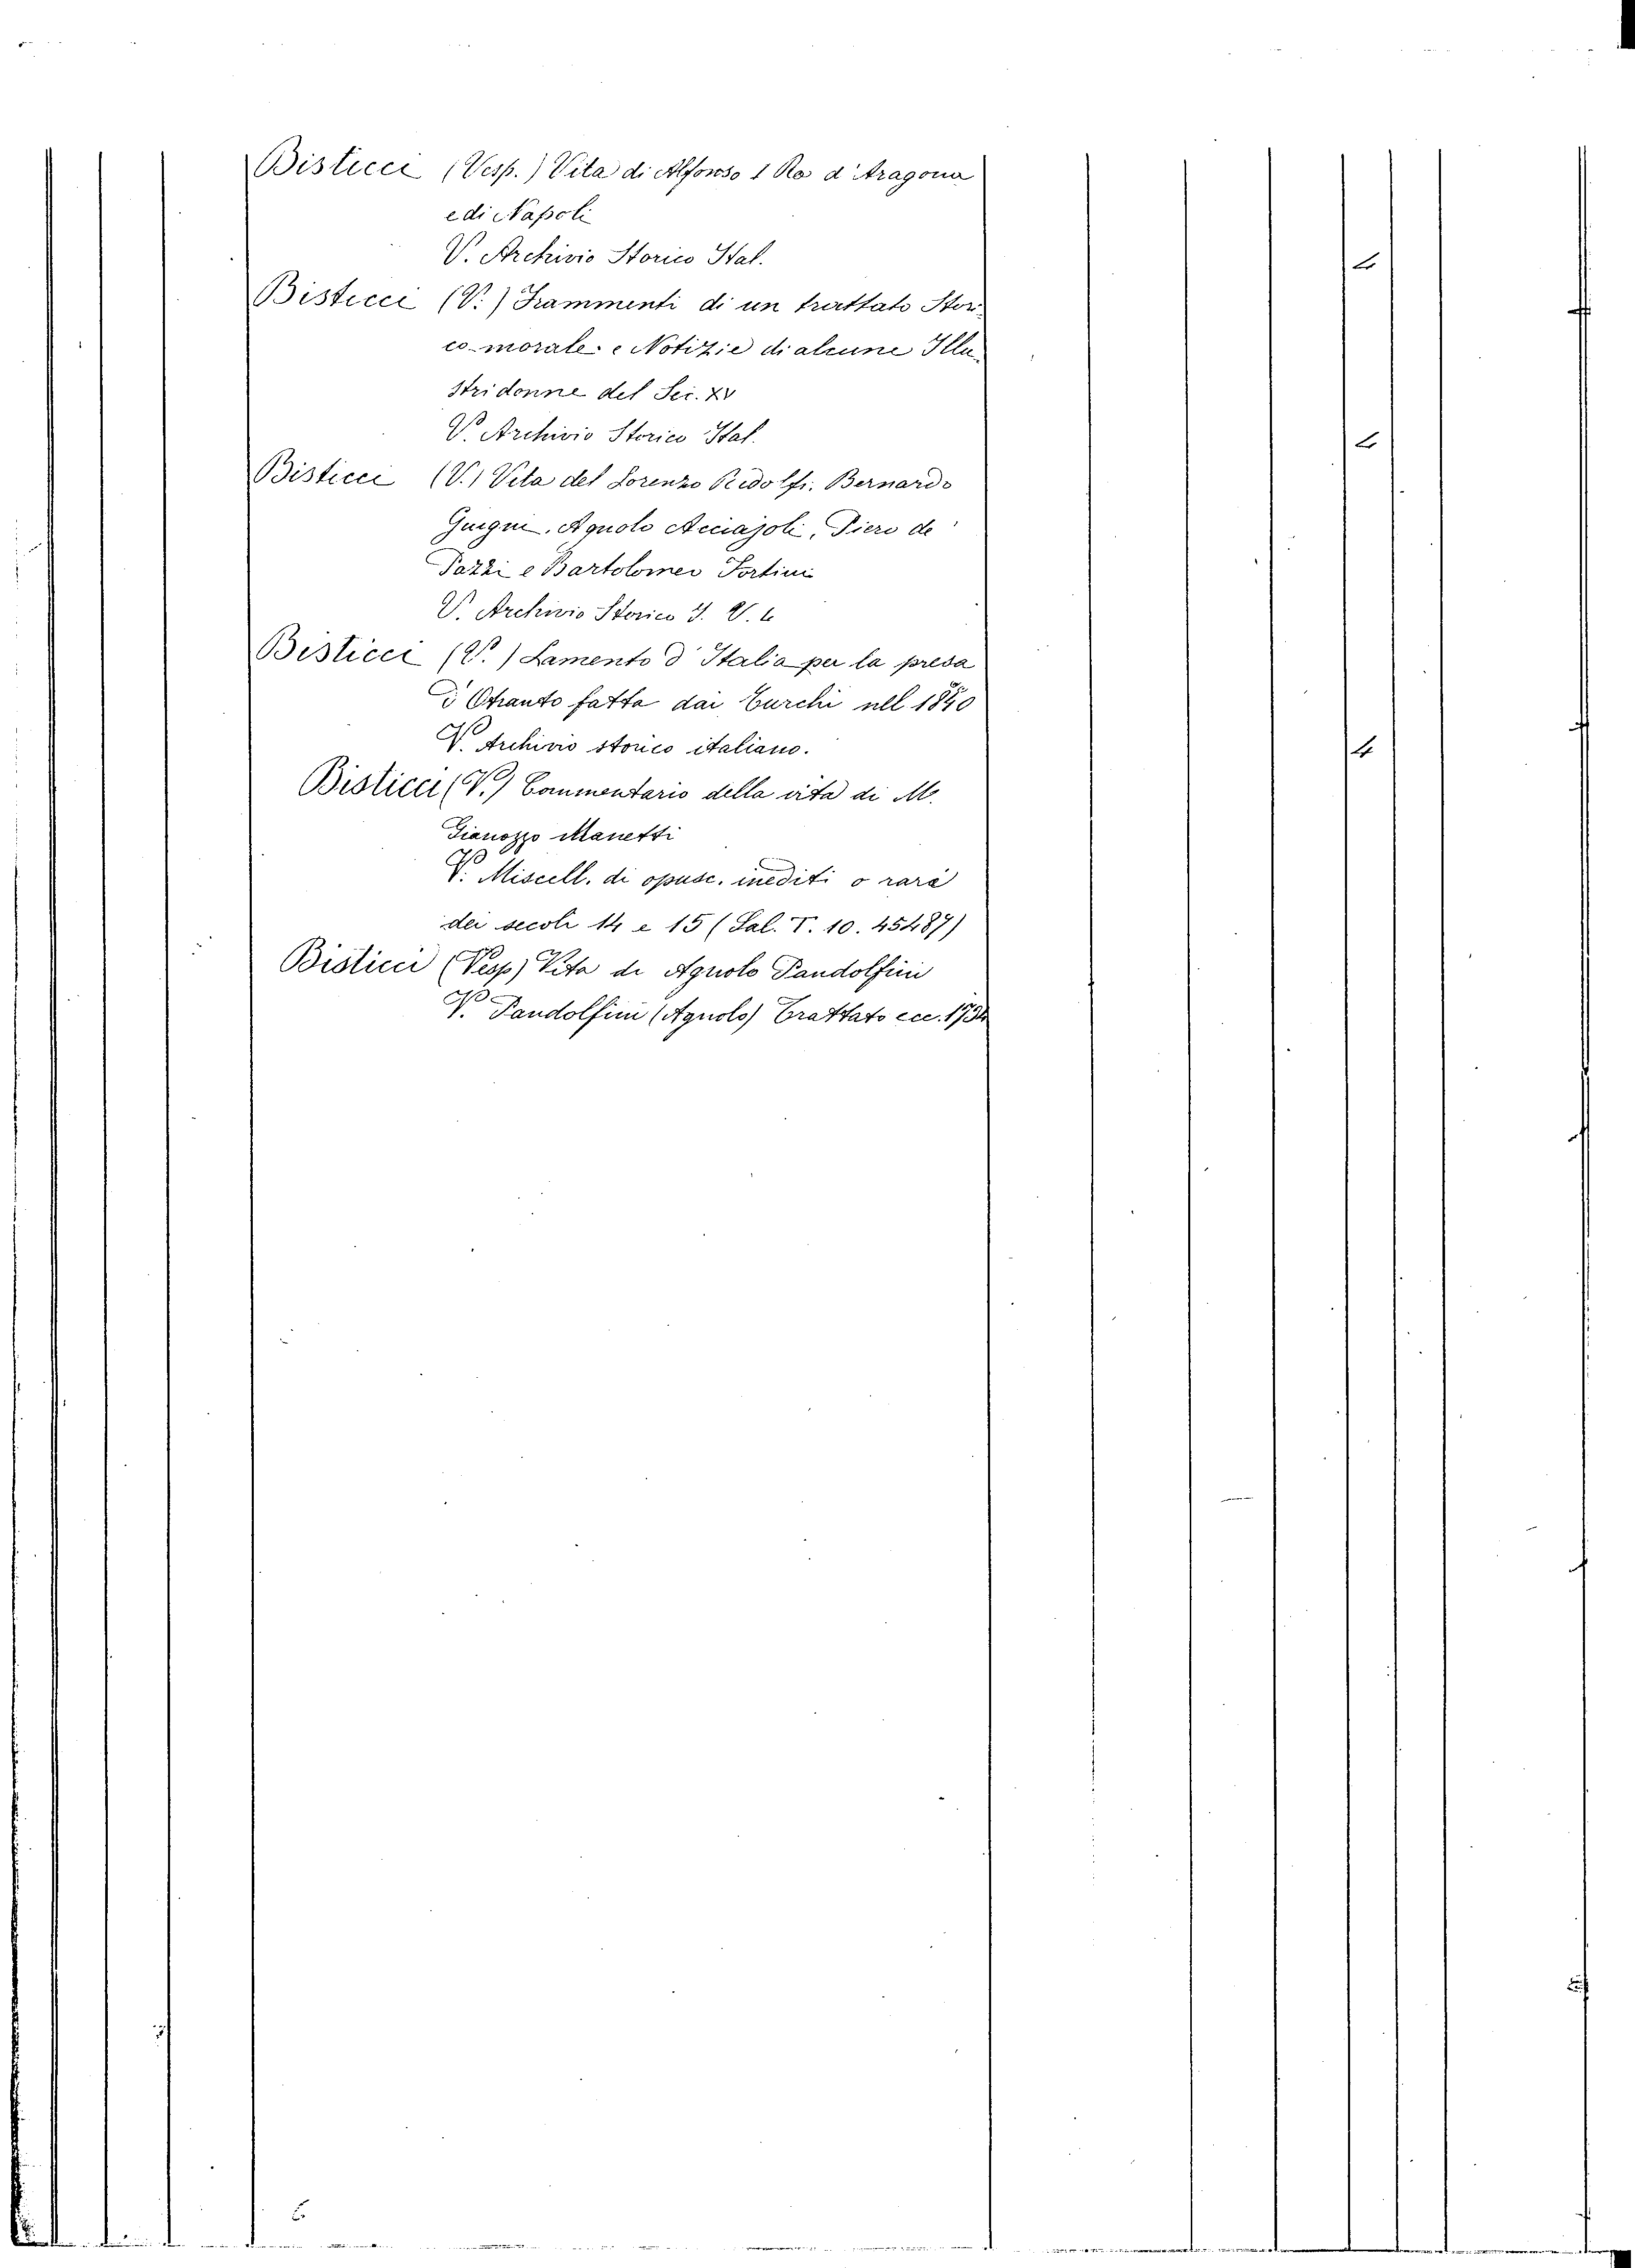 Bisticci (Vesp.) Vita di Alfonso 1 Re d'Aragona
e di Napoli
V. Archivio Storico Ital. 4
Bisticci (V.) Frammenti di un trattato Stori
co-morale. e Notizie di alcune Illu
stri donne del Sec. XV
V. Archivio Storico Ital. 4
Bisticci (V.) Vita del Lorenzo Ridolfi. Bernardo
Giugni. Agnolo Acciajoli, Piero de'
Pazzi e Bartolomeo Fortini
V. Archivio Storico I. V. 4
Bisticci (V.) Lamento d'Italia per la presa
d'Otranto fatta dai Turchi nell
V. Archivio storico italiano. 4
Bisticci (V.) Commentario della vita di M.
Gianozzo Manetti
V. Miscell. di opusc. inediti o rari
dei secoli 14 e 15 (Sal. T. 10. 45487)
Bisticci (Vesp) Vita di Agnolo Pandolfini
V. Pandolfini (Agnolo) Trattato ecc. 1734